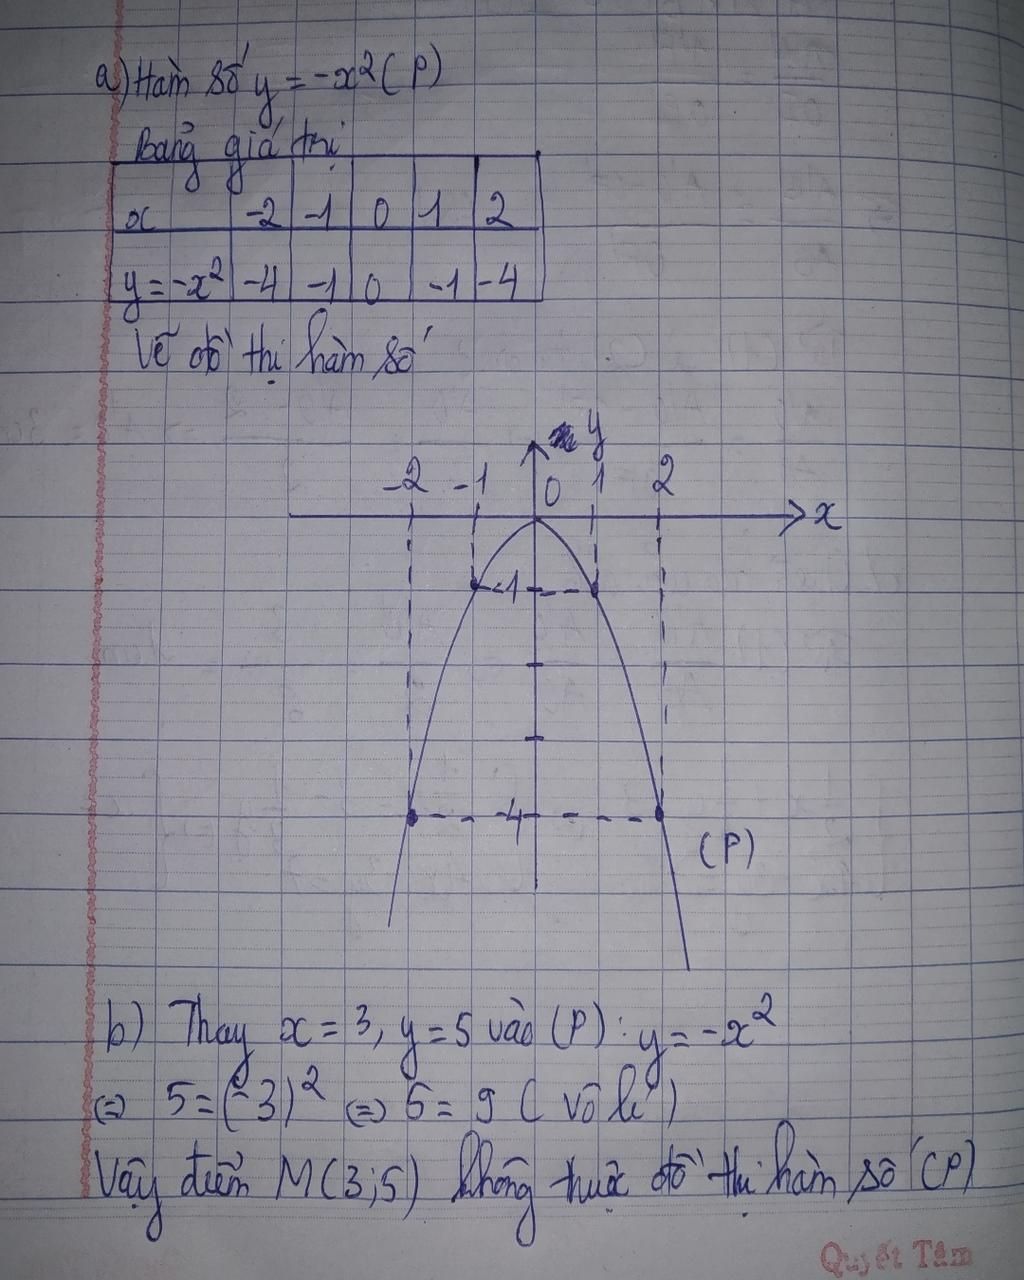 a) Hàm số y = -x² (P)
Bảng giá trị
x -2 -1 0 1 2
y = -x² -4 -1 0 -1 -4
Vẽ đồ thị hàm số
y
-2 -1 0 1 2
x
-1
-4
(P)
b) Thay x = 3, y = 5 vào (P): y = -x²
⇔ 5 = (-3)² ⇔ 5 = 9 (vô lí)
Vậy điểm M(3;5) không thuộc đồ thị hàm số (P)
Quyết Tâm